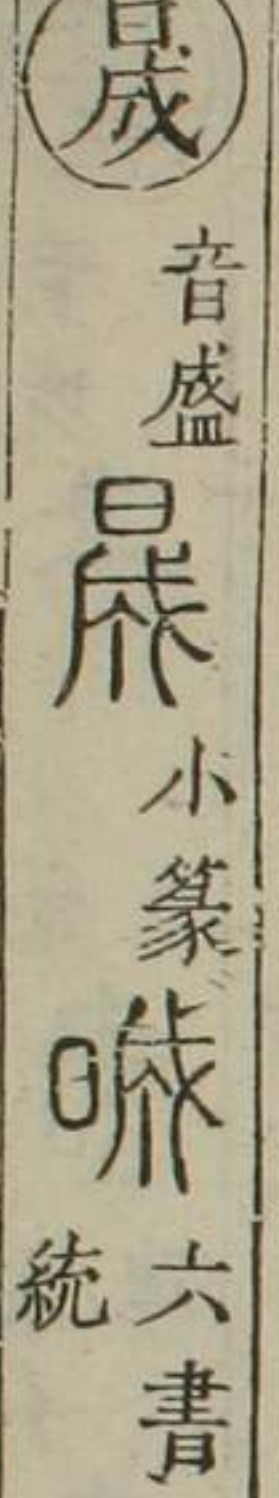 晟音盛晟小篆晟六書統